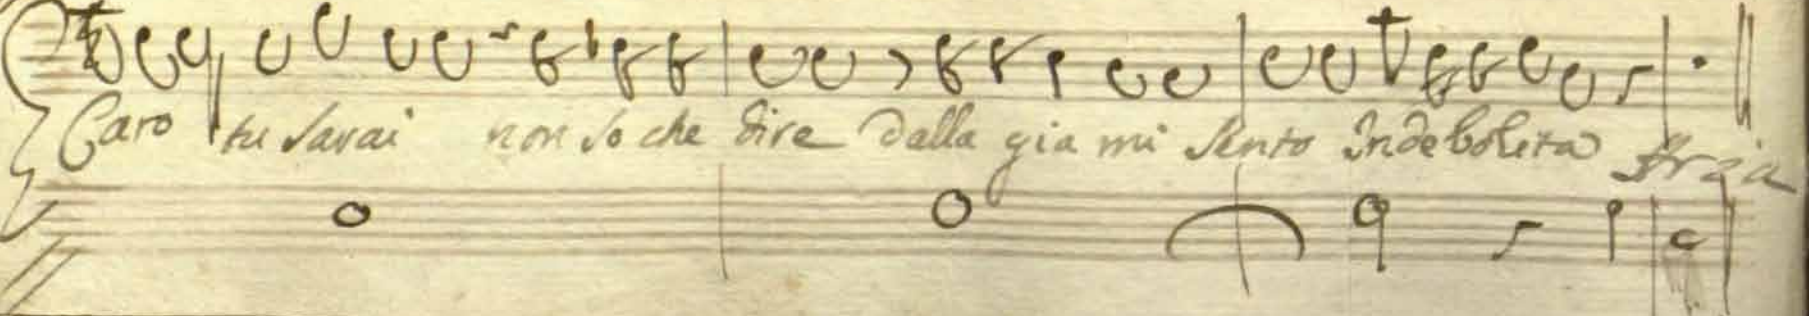 Caro tu sarai non so che dire dalla gia mi sento Indebolita Aria